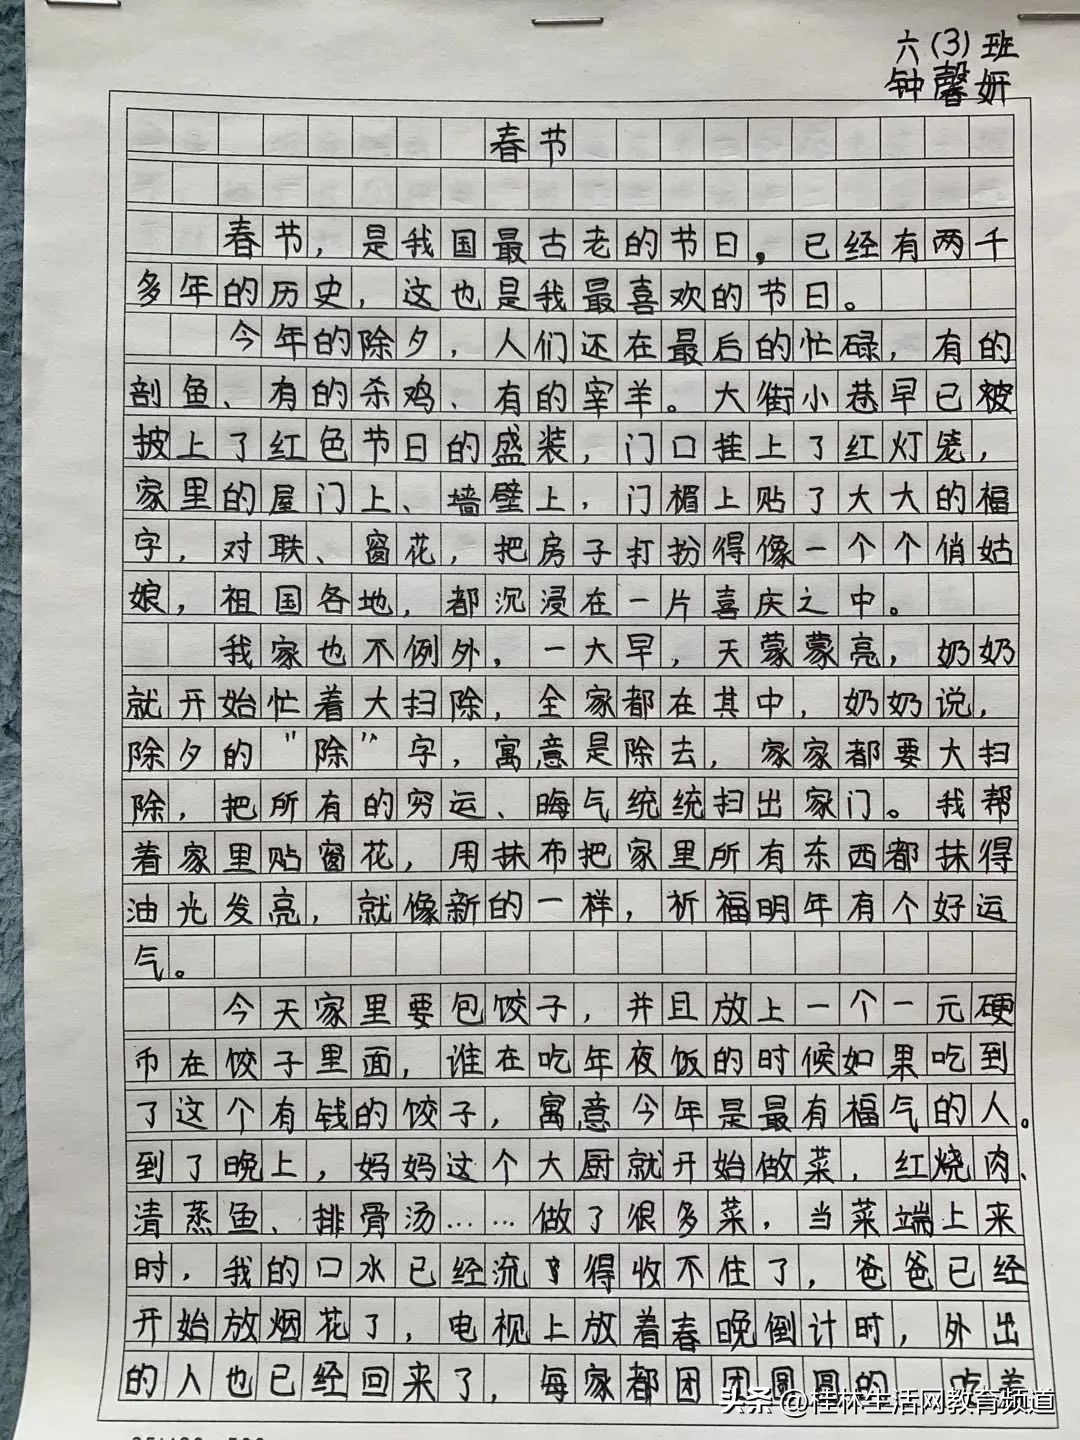 六(3)班
钟馨妍
春节
春节，是我国最古老的节日。已经有两千
多年的历史，这也是我最喜欢的节日。
今年的除夕，人们还在最后的忙碌，有的
剖鱼、有的杀鸡、有的宰羊。大街小巷早已被
披上了红色节日的盛装，门口挂上了红灯笼，
家里的屋门上、墙壁上，门楣上贴了大大的福
字，对联、窗花，把房子打扮得像一个个俏姑
娘，祖国各地，都沉浸在一片喜庆之中。
我家也不例外，一大早，天蒙蒙亮，奶奶
就开始忙着大扫除，全家都在其中，奶奶说，
除夕的"除"字，寓意是除去，家家都要大扫
除，把所有的穷运、晦气统统扫出家门。我帮
着家里贴窗花，用抹布把家里所有东西都抹得
油光发亮，就像新的一样，祈福明年有个好运
气。
今天家里要包饺子，并且放上一个一元硬
币在饺子里面，谁在吃年夜饭的时候如果吃到
了这个有钱的饺子，寓意今年是最有福气的人。
到了晚上，妈妈这个大厨就开始做菜，红烧肉、
清蒸鱼、排骨汤……做了很多菜，当菜端上来
时，我的口水已经流得收不住了，爸爸已经
开始放烟花了，电视上放着春晚倒计时，外出
的人也已经回来了，每家都团团圆圆的 吃着
头条@桂林生活网教育频道